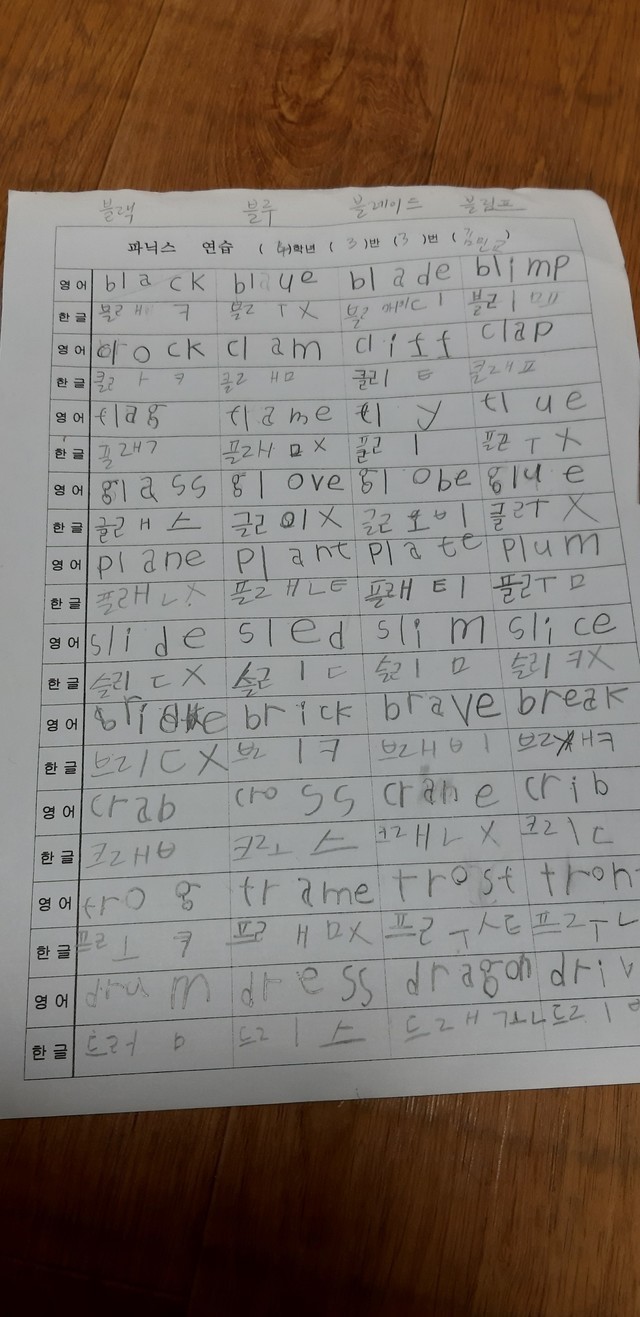 블랙 블루 블레이드 블림프
파닉스 연습 ( 4 )학년 ( 3 )반 ( 3 )번
영어 black blaue blade blimp
한글 블래 ㅋ 블ㄹ ㅜ X 블 에이ㄷ ㅣ 블ㄹ ㅣ ㅁㅍ
영어 clock clam cliff clap
한글 클ㄹ ㅏ ㅋ 클ㄹ ㅐㅁ 클리 ㅌ 클래ㅍ
영어 flag flame fl y fl ue
한글 플래ㄱ 플ㄹㅐ ㅁ X 플ㄹ ㅣ 플ㄹ ㅜ X
영어 glass glove globe glue
한글 글ㄹ ㅐ ㅅ 글ㄹ X 글ㄹ ㅗㅂ ㅣ 글ㄹㅜ X
영어 plane plant plate plum
한글 플ㄹㅐㄴX 플ㄹ ㅐㄴㅌ 플래 ㅌㅣ 플ㄹㅜ ㅁ
영어 slide sled slim slice
한글 슬리 ㄷ X 슬ㄹ ㅣ ㄷ 슬리 ㅁ 슬리 ㅋX
영어 brick brave break
한글 브ㄹㅣㄷX 브ㄹ ㅣㅋ 브ㄹㅐㅂㅣ 브ㄹㅐㅋ
영어 crab cross crane crib
한글 크ㄹㅐㅂ 크ㄹㅗ ㅅ 크ㄹㅐㄴ X 크ㄹㅣㄱ
영어 frog frame frost fron
한글 프ㄹㅜ ㅋ 프ㄹ ㅐ ㅁX 프ㄹ ㅜㅅㅌ 프ㄹㅜㄴ
영어 drum dress dragon driv
한글 드ㄹㅓ ㅁ 드ㄹ ㅣ ㅅ 드ㄹㅐ 드ㄹ ㅣ